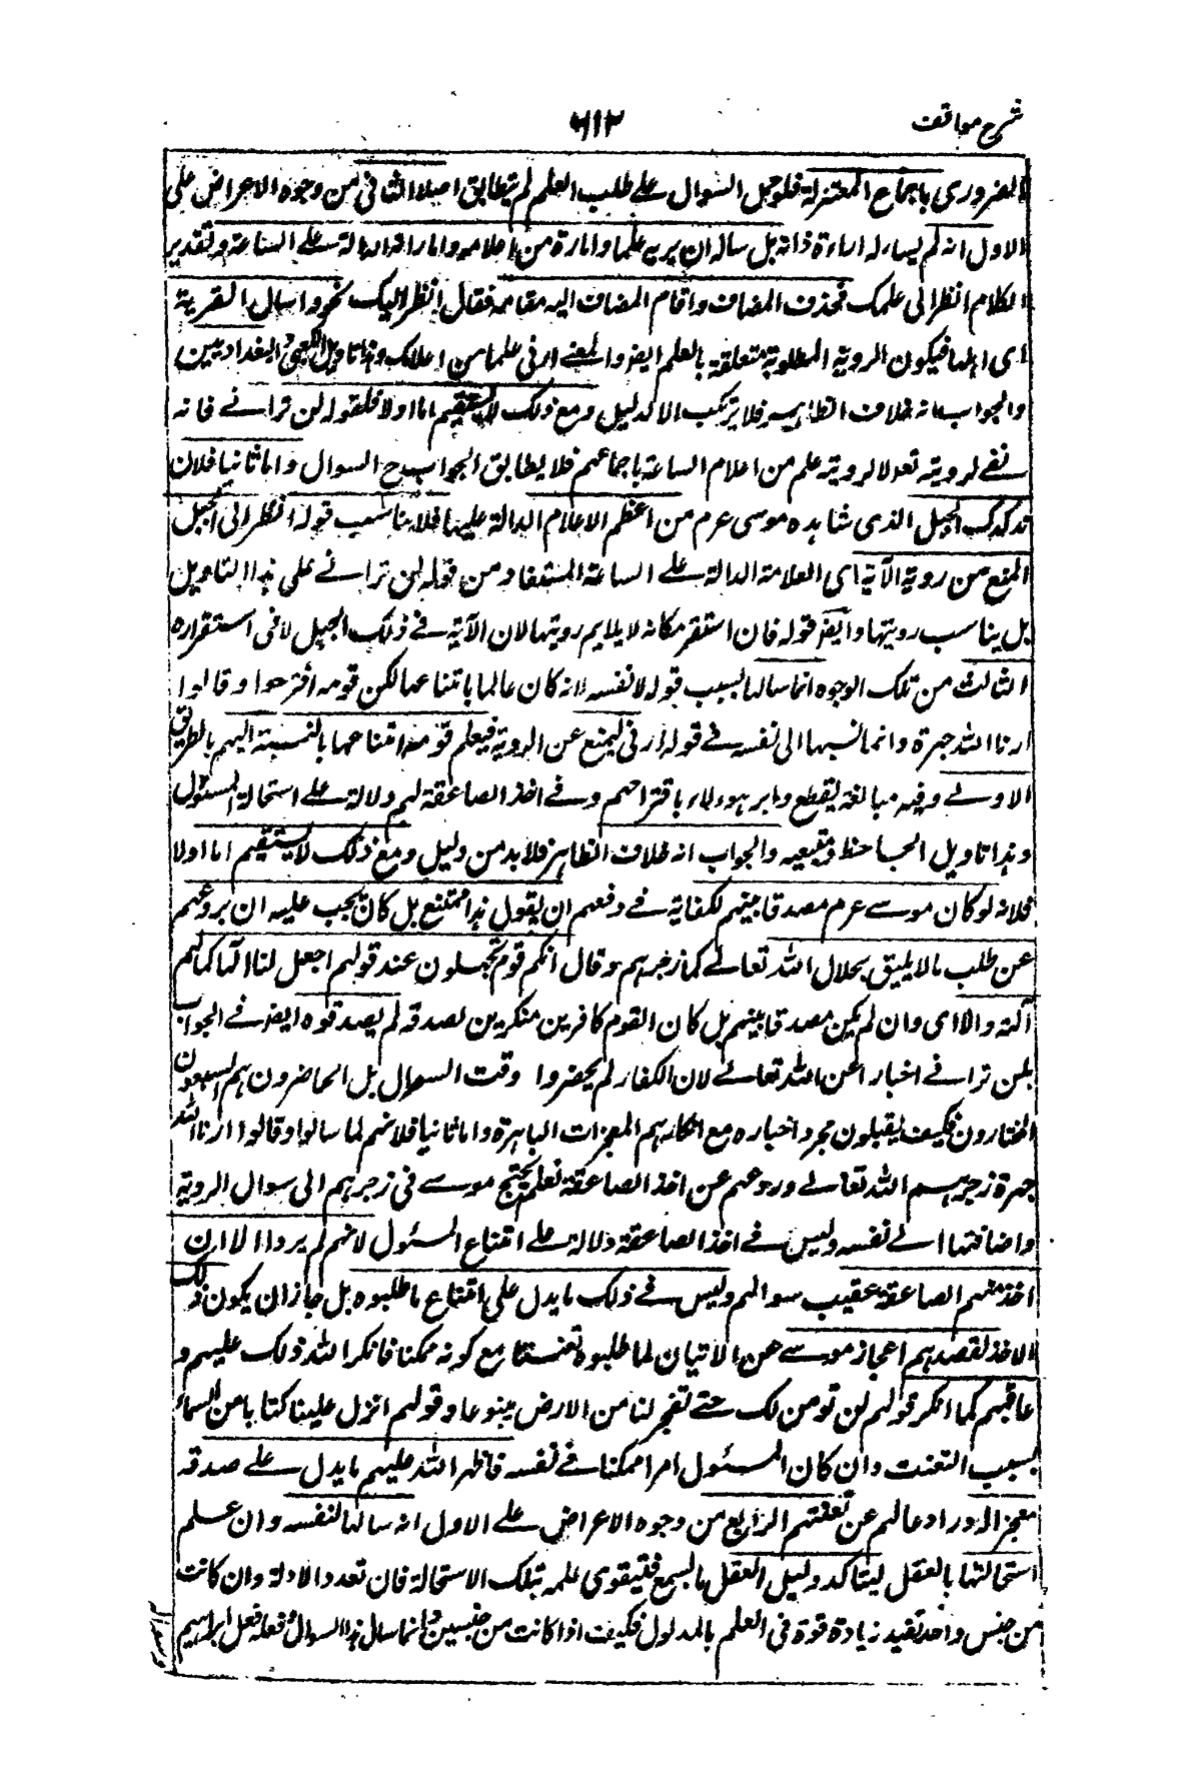 شرح مواقف
٦١٢
الضروري باجماع المعتزلة فلو حمل السوال على طلب العلم لم يتطابق اصلا الثاني من وجوه الاعراض على
الاول انه لم يساءله اراءة ذاته بل ساله ان يريه علما وامارة من اعلامه واماراته الدالة على الساعة وتقدير
الكلام انظر الى علمك فحذف المضاف واقام المضاف اليه مقامه فقال انظر اليك نحو واسال القرية
اى اهلها فيكون الروية المطلوبة متعلقة بالعلم ايضا والمعنى ارنى علما من اعلامك وهذا تاويل الكعبى والبغداديين
والجواب انه خلاف الظاهر فلا يرتكب الا لدليل ومع ذلك لا يستقيم اما اولا فلقوله لن ترانى فانه
نفى لرويته تعم لا لروية علم من اعلام الساعة باجماعهم فلا يطابق الجواب ح السوال واما ثانيا فلان
تدكدك الجبل الذى شاهده موسى عم من اعظم الاعلام الدالة عليها فلا يناسب قوله انظر الى الجبل
المنع من روية الآية اى العلامة الدالة على الساعة المستفاد من قوله لن ترانى على هذا التاويل
بل يناسب رويتها وايضا قوله فان استقر مكانه لا يلايم رويتها لان الآية فى ذلك الجبل لا فى استقراره
الثالث من تلك الوجوه انما سالها بسبب قومه لا نفسه لانه كان عالما بامتناعها لكن قومه اقترحوا وقالوا
ارنا الله جهرة وانما نسبها الى نفسه فى قوله ارنى ليمنع عن الروية فيعلم قومه امتناعها بالنسبة اليهم بالطريق
الاولى وفيه مبالغة لقطع دابر هولاء باقتراحهم وفى اخذ الصاعقة لهم دلالة على استحالة المسئول
وهذا تاويل الجاحظ ومتبعيه والجواب انه خلاف الظاهر فلا بد من دليل ومع ذلك لا يستقيم اما اولا
فلانه لو كان موسى عم مصدقا بينهم لكفاية فى دفعهم ان يقول هذا ممتنع بل كان يجب عليه ان يردعهم
عن طلب ما لا يليق بجلال الله تعالى كما زجرهم وقال انكم قوم تجهلون عند قولهم اجعل لنا الها كما لهم
آلهة والا اى وان لم يكن مصدقا بينهم بل كان القوم كافرين منكرين لصدقه لم يصدقوه ايضا فى الجواب
بلن ترانى اخبارا عن الله تعالى لان الكفار لم يحضروا وقت السوال بل الحاضرون هم السبعون
المختارون فكيف يقبلون مجرد اخباره مع انكارهم المعجزات الباهرة واما ثانيا فلانهم لما سالوا وقالوا ارنا الله
جهرة زجرهم الله تعالى وردعهم عن اخذ الصاعقة فلم يحتج موسى فى زجرهم الى سوال الروية
واضافتها الى نفسه وليس فى اخذ الصاعقة دلالة على امتناع المسئول لانهم لم يروا الا ان
اخذتهم الصاعقة عقيب سوالهم وليس فى ذلك ما يدل على امتناع ما طلبوه بل جاز ان يكون ذلك
الاخذ لقصدهم اعجاز موسى عن الاتيان لما طلبوه تعنتا مع كونه ممكنا فانكر الله ذلك عليهم و
عاقبهم كما انكر قولهم لن نومن لك حتى تفجر لنا من الارض ينبوعا وقولهم انزل علينا كتابا من السماء
بسبب التعنت وان كان المسئول امرا ممكنا فى نفسه فاظهر الله عليهم ما يدل على صدقه
معجزا له ورادعا لهم عن تعنتهم الرابع من وجوه الاعراض على الاول انه سالها لنفسه وان علم
استحالتها بالعقل ليتاكد دليل العقل بالسمع فيتقوى علمه بتلك الاستحالة فان تعدد الادلة وان كانت
من جنس واحد تفيد زيادة قوة فى العلم بالمدلول فكيف اذا كانت من جنسين وانما سال هذا السوال وفعله فعل ابراهيم